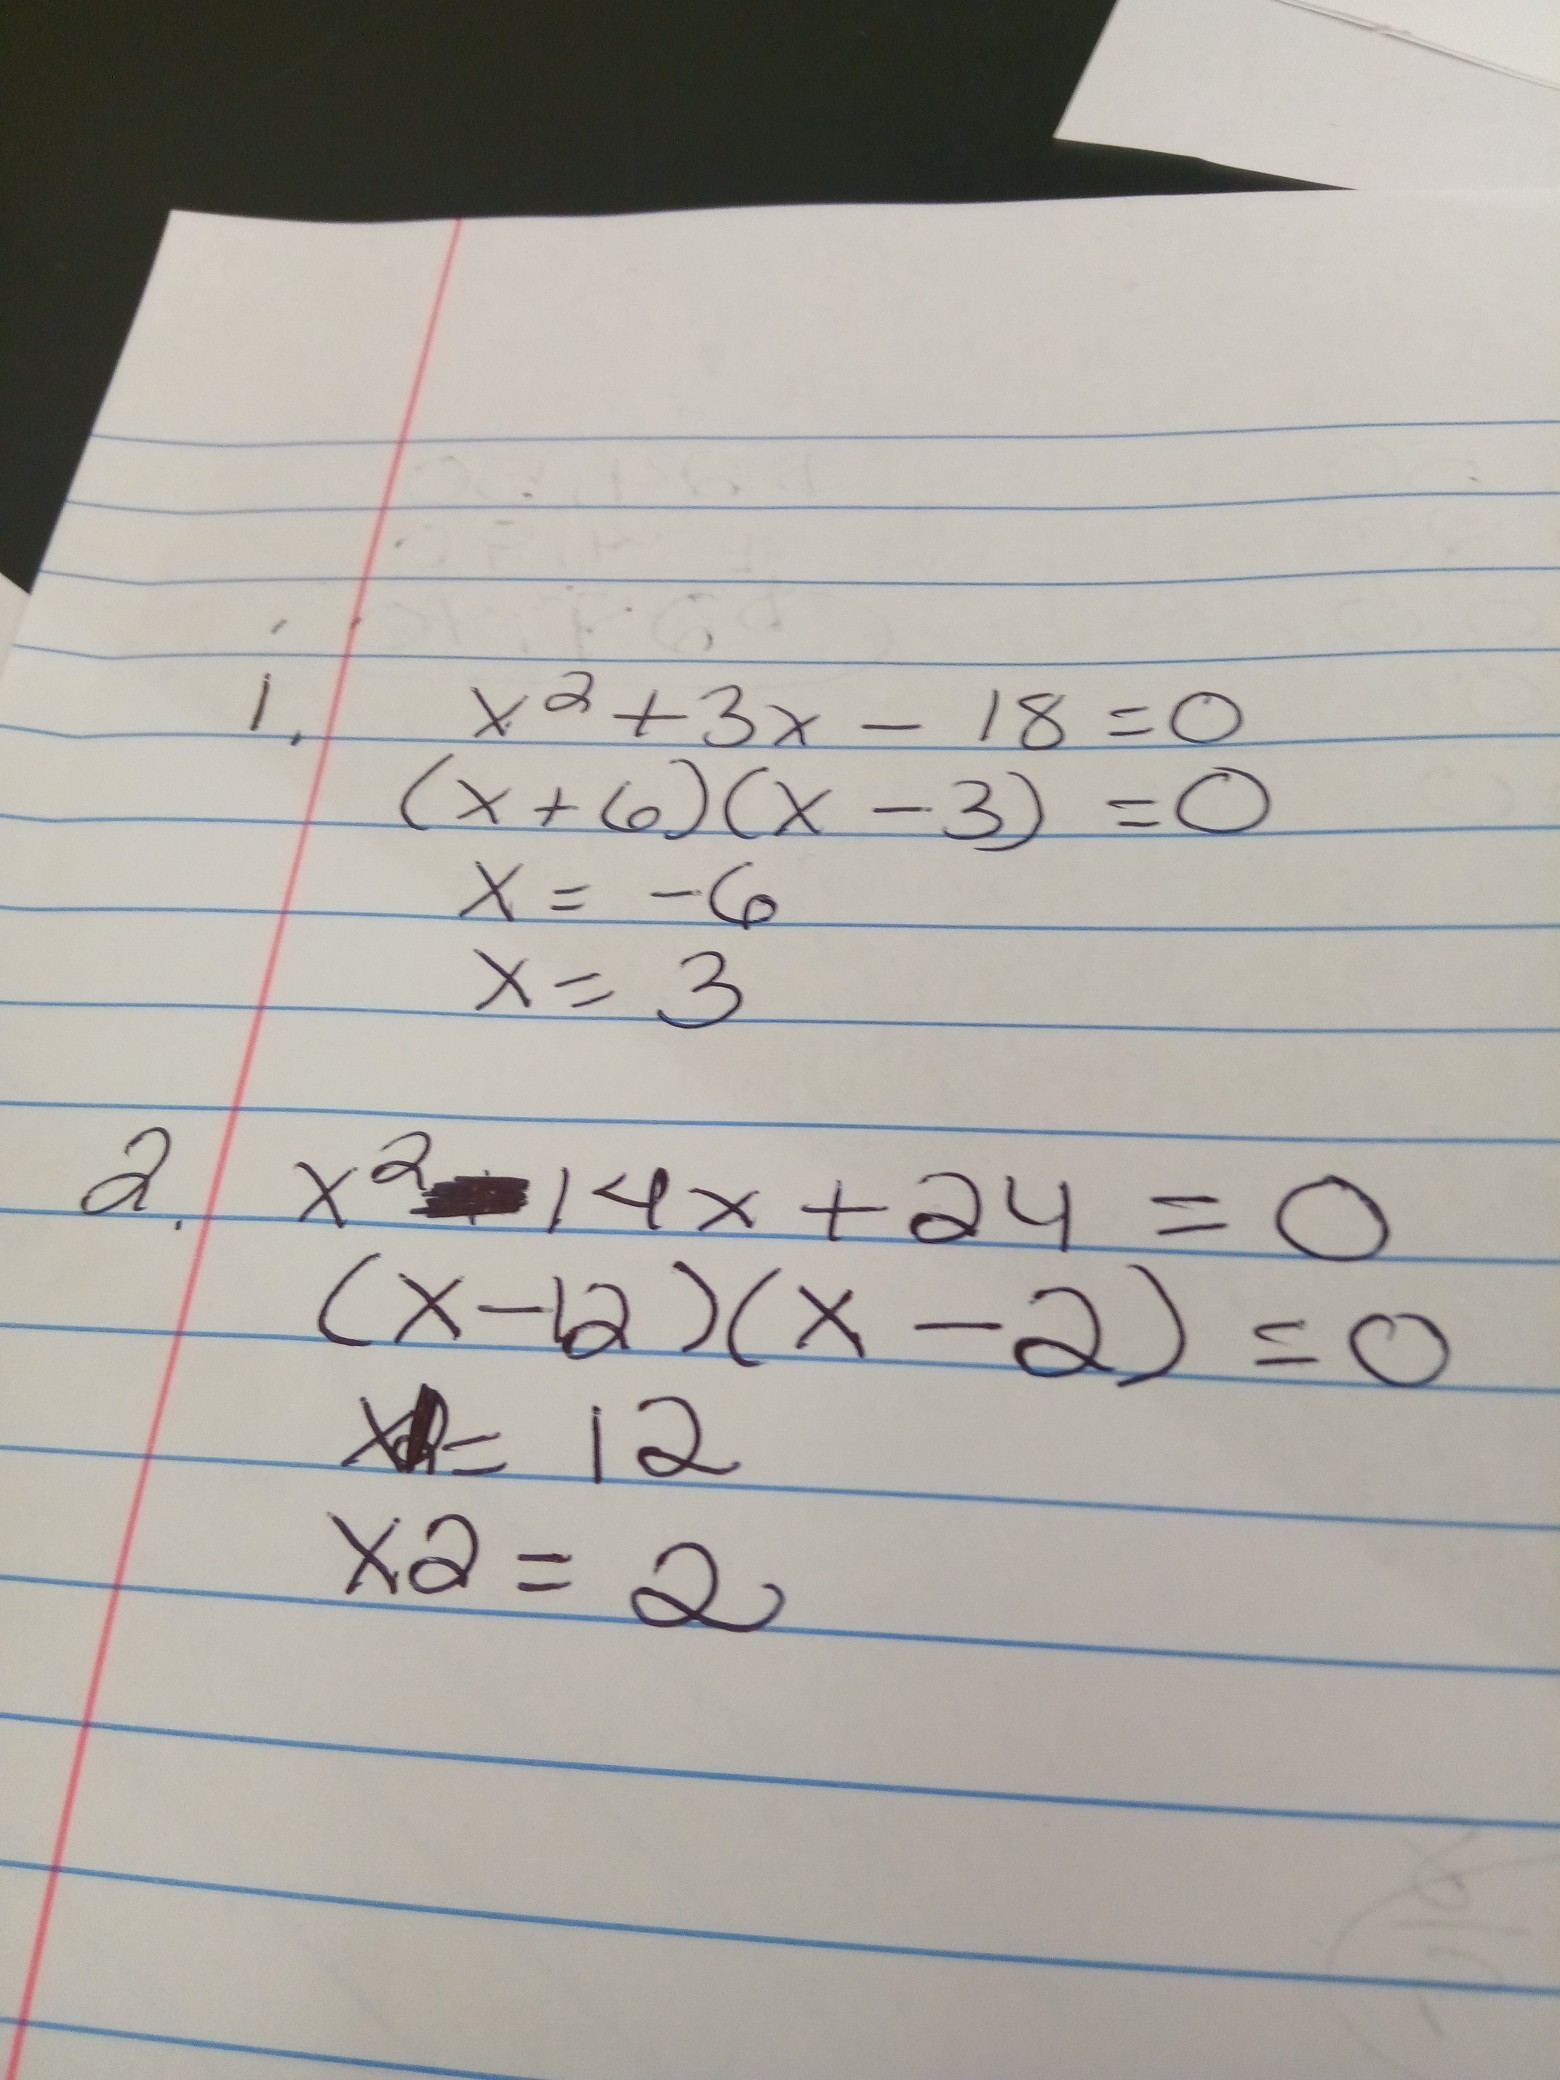 1. x² + 3x - 18 = 0
(x + 6)(x - 3) = 0
x = -6
x = 3
2. x² - 14x + 24 = 0
(x - 12)(x - 2) = 0
x = 12
x2 = 2